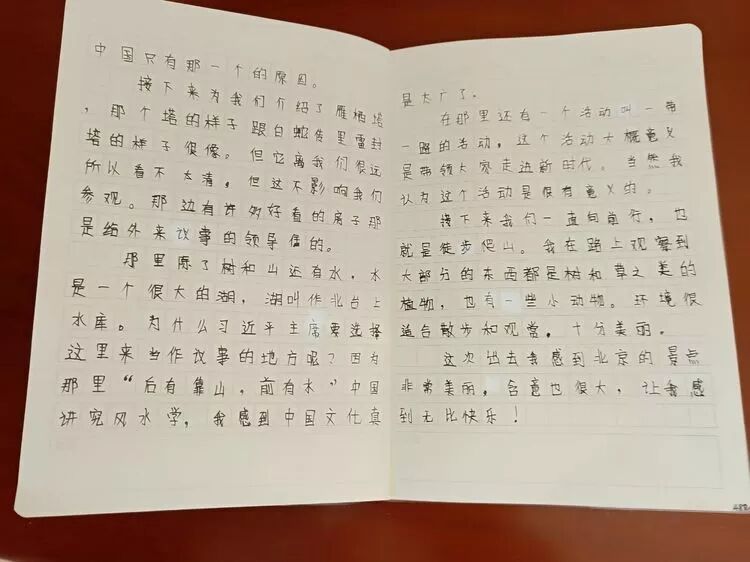 中国只有那一个的原因。
接下来为我们介绍了雁栖塔
，那个塔的样子跟白蛇传里雷封
塔的样子很像。但它离我们很远
所以看不太清，但这不影响我们
参观。那边有许多好看的房子那
是给外来议事的领导住的。
那里除了树和山还有水，水
是一个很大的湖，湖叫作北台上
水库。为什么习近平主席要选择
这里来当作议事的地方呢？因为
那里“后有靠山，前有水”中国
讲究风水学，我感到中国文化真
是太广了。
在那里还有一个活动叫一带
一路的活动，这个活动大概意义
是带领大家走进新时代。当然我
认为这个活动是很有意义的。
接下来我们一直向前行，也
就是徒步爬山。我在路上观察到
大部分的东西都是树和草之美的
植物，也有一些小动物。环境很
适合散步和观赏。十分美丽。
这次出去我感到北京的景点
非常美丽，含意也很大，让我感
到无比快乐！